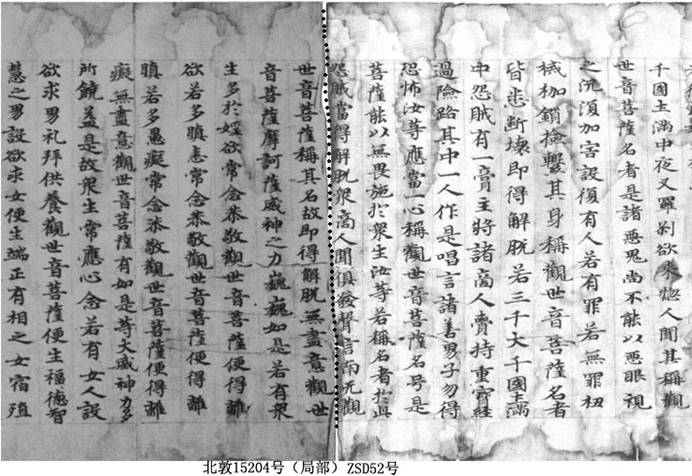 千國土滿中夜叉羅剎欲來惱人聞其稱觀
世音菩薩名者是諸惡鬼尚不能以惡眼視
之況復加害設復有人若有罪若無罪杻
械枷鎖撿繫其身稱觀世音菩薩名者
皆悉斷壞即得解脫若三千大千國土滿
中怨賊有一商主將諸商人賫持重寶經
過險路其中一人作是唱言諸善男子勿得
恐怖汝等應當一心稱觀世音菩薩名号是
菩薩能以無畏施於眾生汝等若稱名者於此
怨賊當得解脫眾商人聞俱發聲言南无觀
世音菩薩稱其名故即得解脫無盡意觀世
音菩薩摩訶薩威神之力巍巍如是若有眾
生多於婬欲常念恭敬觀世音菩薩便得離
欲若多瞋恚常念恭敬觀世音菩薩便得離
瞋若多愚癡常念恭敬觀世音菩薩便得離
癡無盡意觀世音菩薩有如是等大威神力多
所饒益是故眾生常應心念若有女人設
欲求男礼拜供養觀世音菩薩便生福德智
慧之男設欲求女便生端正有相之女宿殖
北敦15204号（局部）ZSD52号